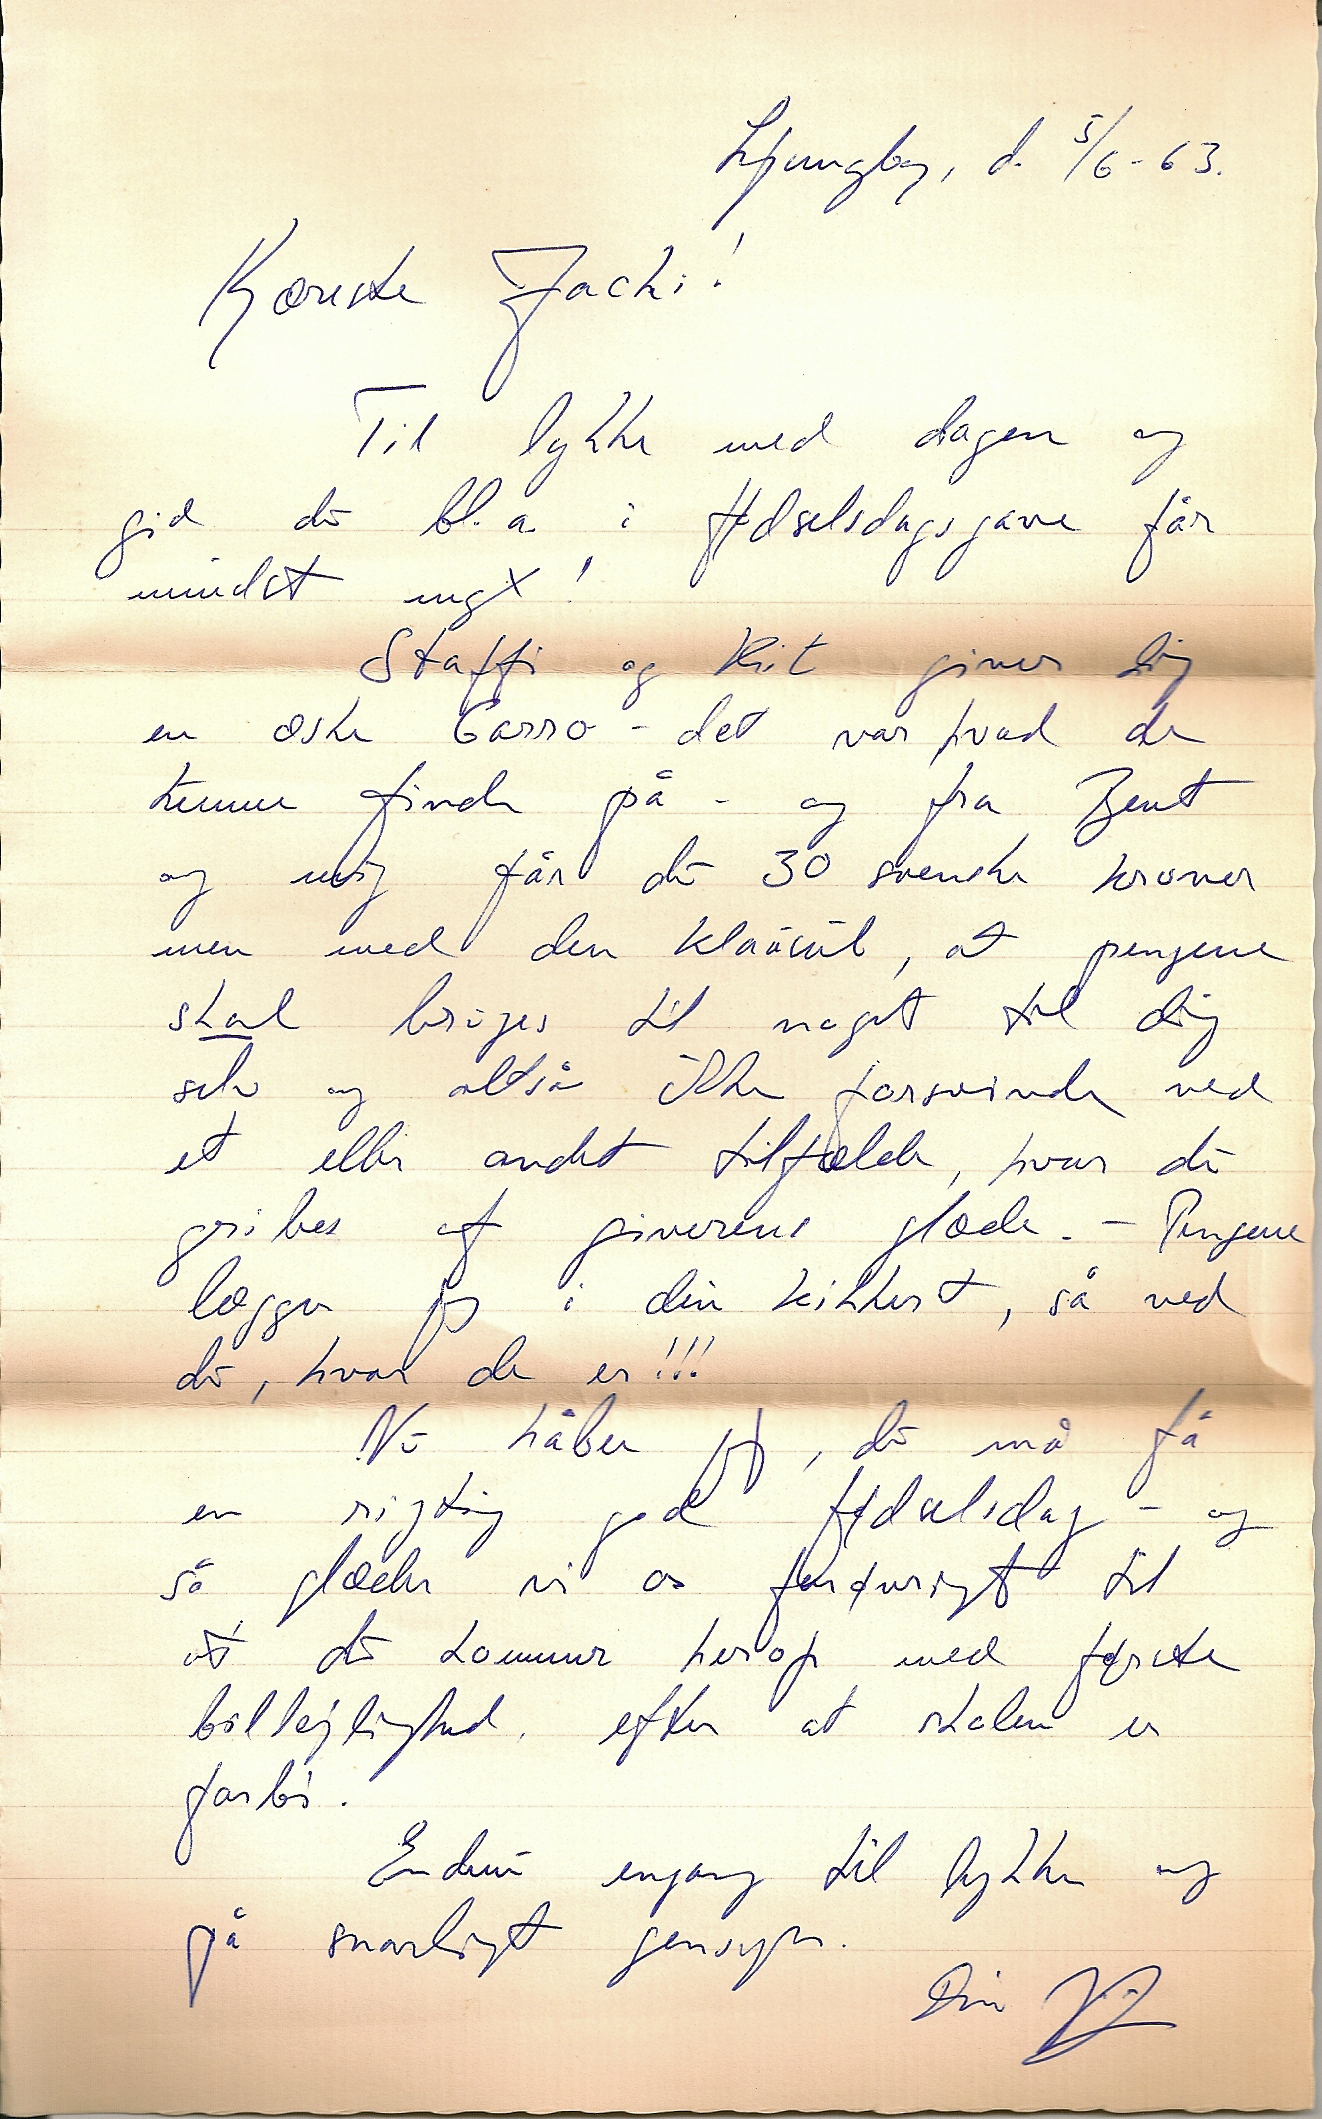 Ljungby, d. 5/6-63.
Kæreste Jacki!
Til lykke med dagen og
gid du bl.a. i fødselsdagsgave får
mindst ug+!
Staffi og Kit giver dig
en æske Carro - det var hvad de
kunne finde på - og fra Bent
og mig får du 30 svenske kroner
men med den klausul, at pengene
skal bruges til noget til dig
selv og altså ikke forsvinde ved
et eller andet tilfælde, hvor du
gribes af giverens glæde. - Pengene
lægger jeg i din kikkert, så ved
du, hvor de er!!!
Nu håber jeg, du må få
en rigtig god fødselsdag - og
så glæder vi os til
at du kommer herop med første
billejlighed, efter at skolen er
forbi.
Endnu engang til lykke og
på snarligt gensyn.
Din